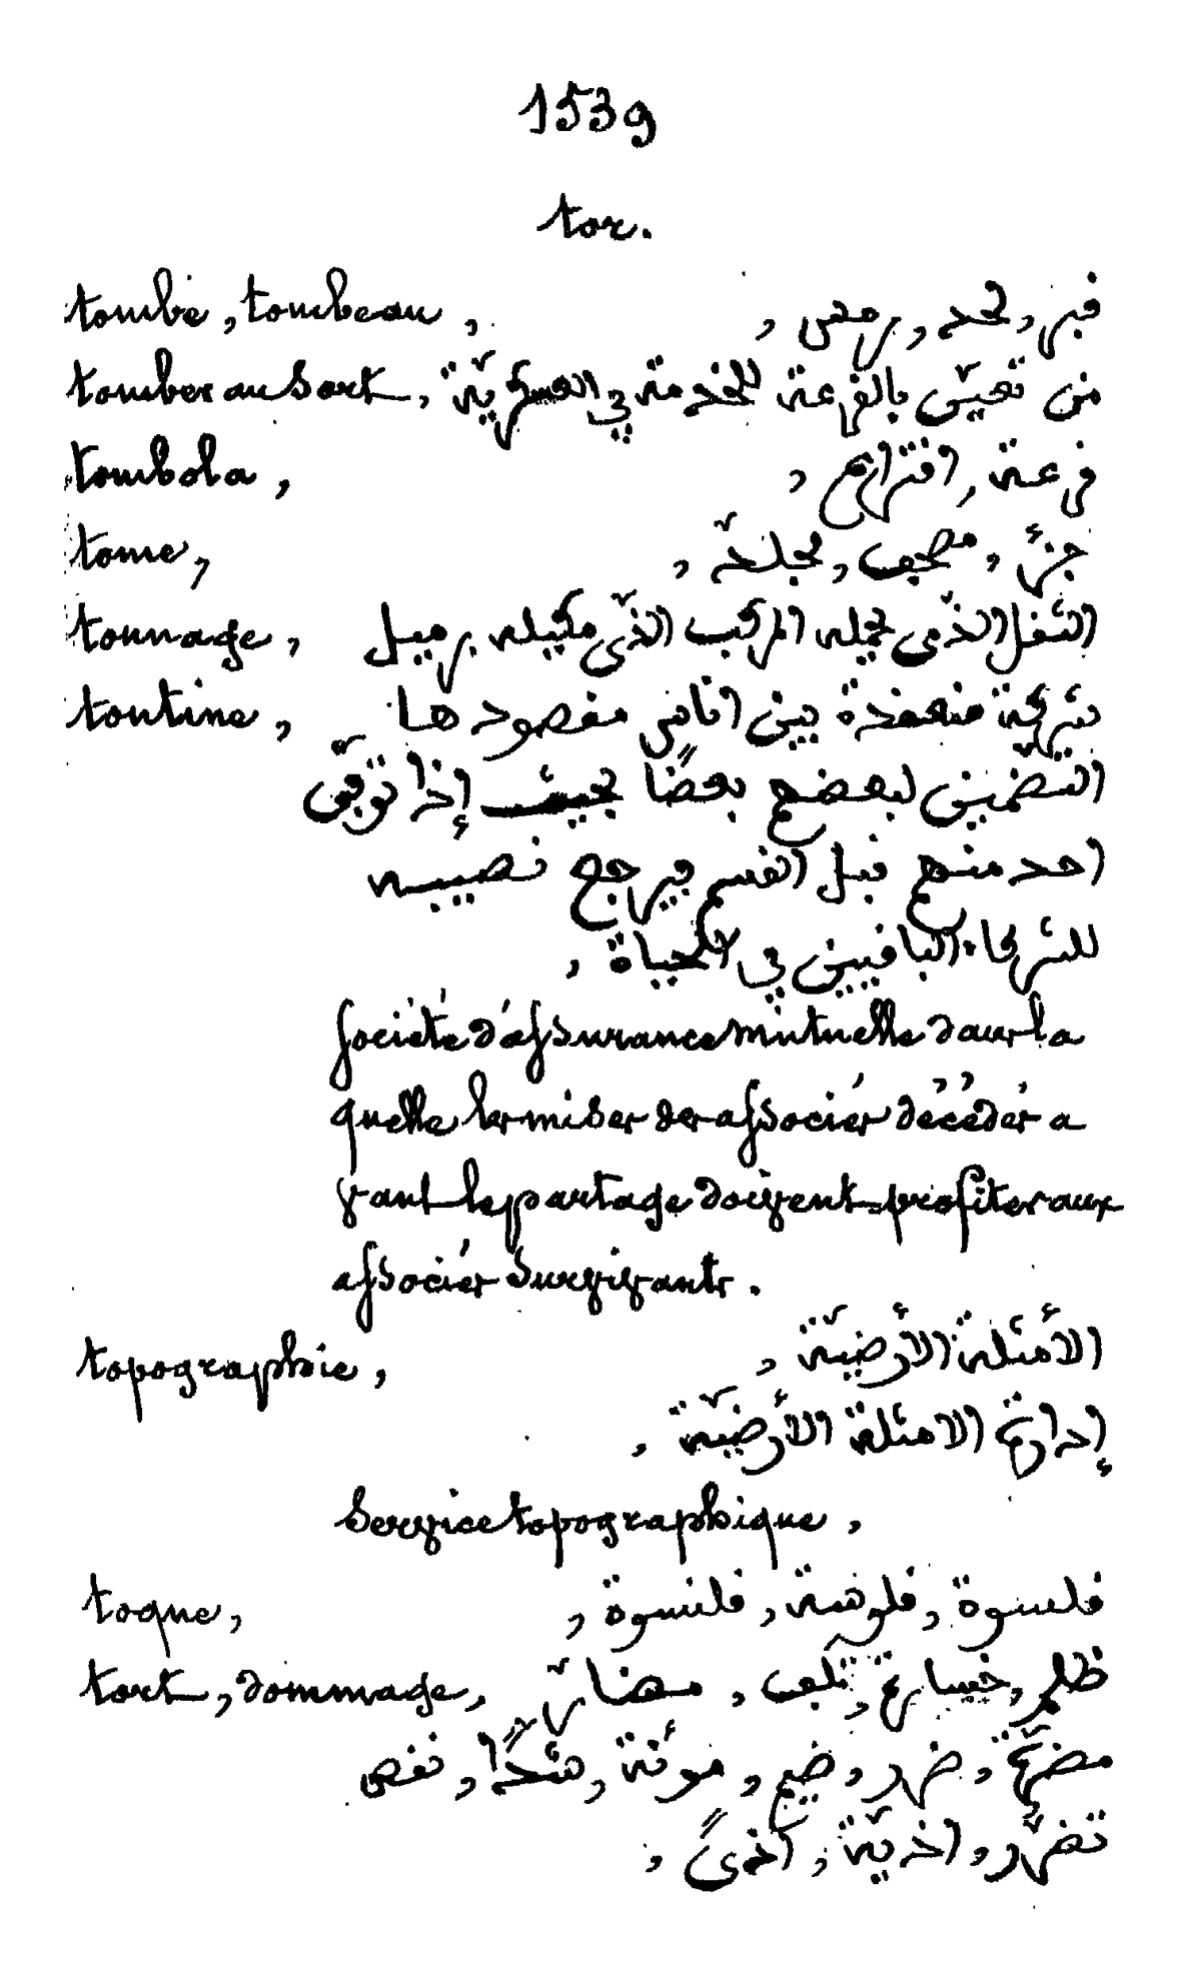 1539
tor.
tombe, tombeau, قبر, لحد, رمس,
tomber au sort, من تعيّن بالقرعة للخدمة في العسكريّة
tombola, قرعة, اقتراع,
tome, جزء, مصحف, مجلّد,
tonnage, الثقل الذّي تحمله المركب الذّي مكيله برميل
tontine, شركة منعقدة بين اناس مقصودها
التضمين لبعضهم بعضًا بحيث إذا توفّى
احد منهم قبل القسم فيرجع نصيبه
للشركاء الباقيين في الحياة,
Société d'assurance mutuelle dans la
quelle les mises des associés décédés a
vant le partage doivent profiter aux
associés survivants.
topographie, الأمثلة الأرضيّة,
إدارة الامثلة الأرضيّة,
Service topographique,
toque, قلسوة, قلوسة, قلنسوة,
tort, dommage, ظلم, خسارة, تلف, مضارّ
مضرّة, ضرر, ضيم, مؤنة, نقص
تضرّر, اذيّة, أذىً,